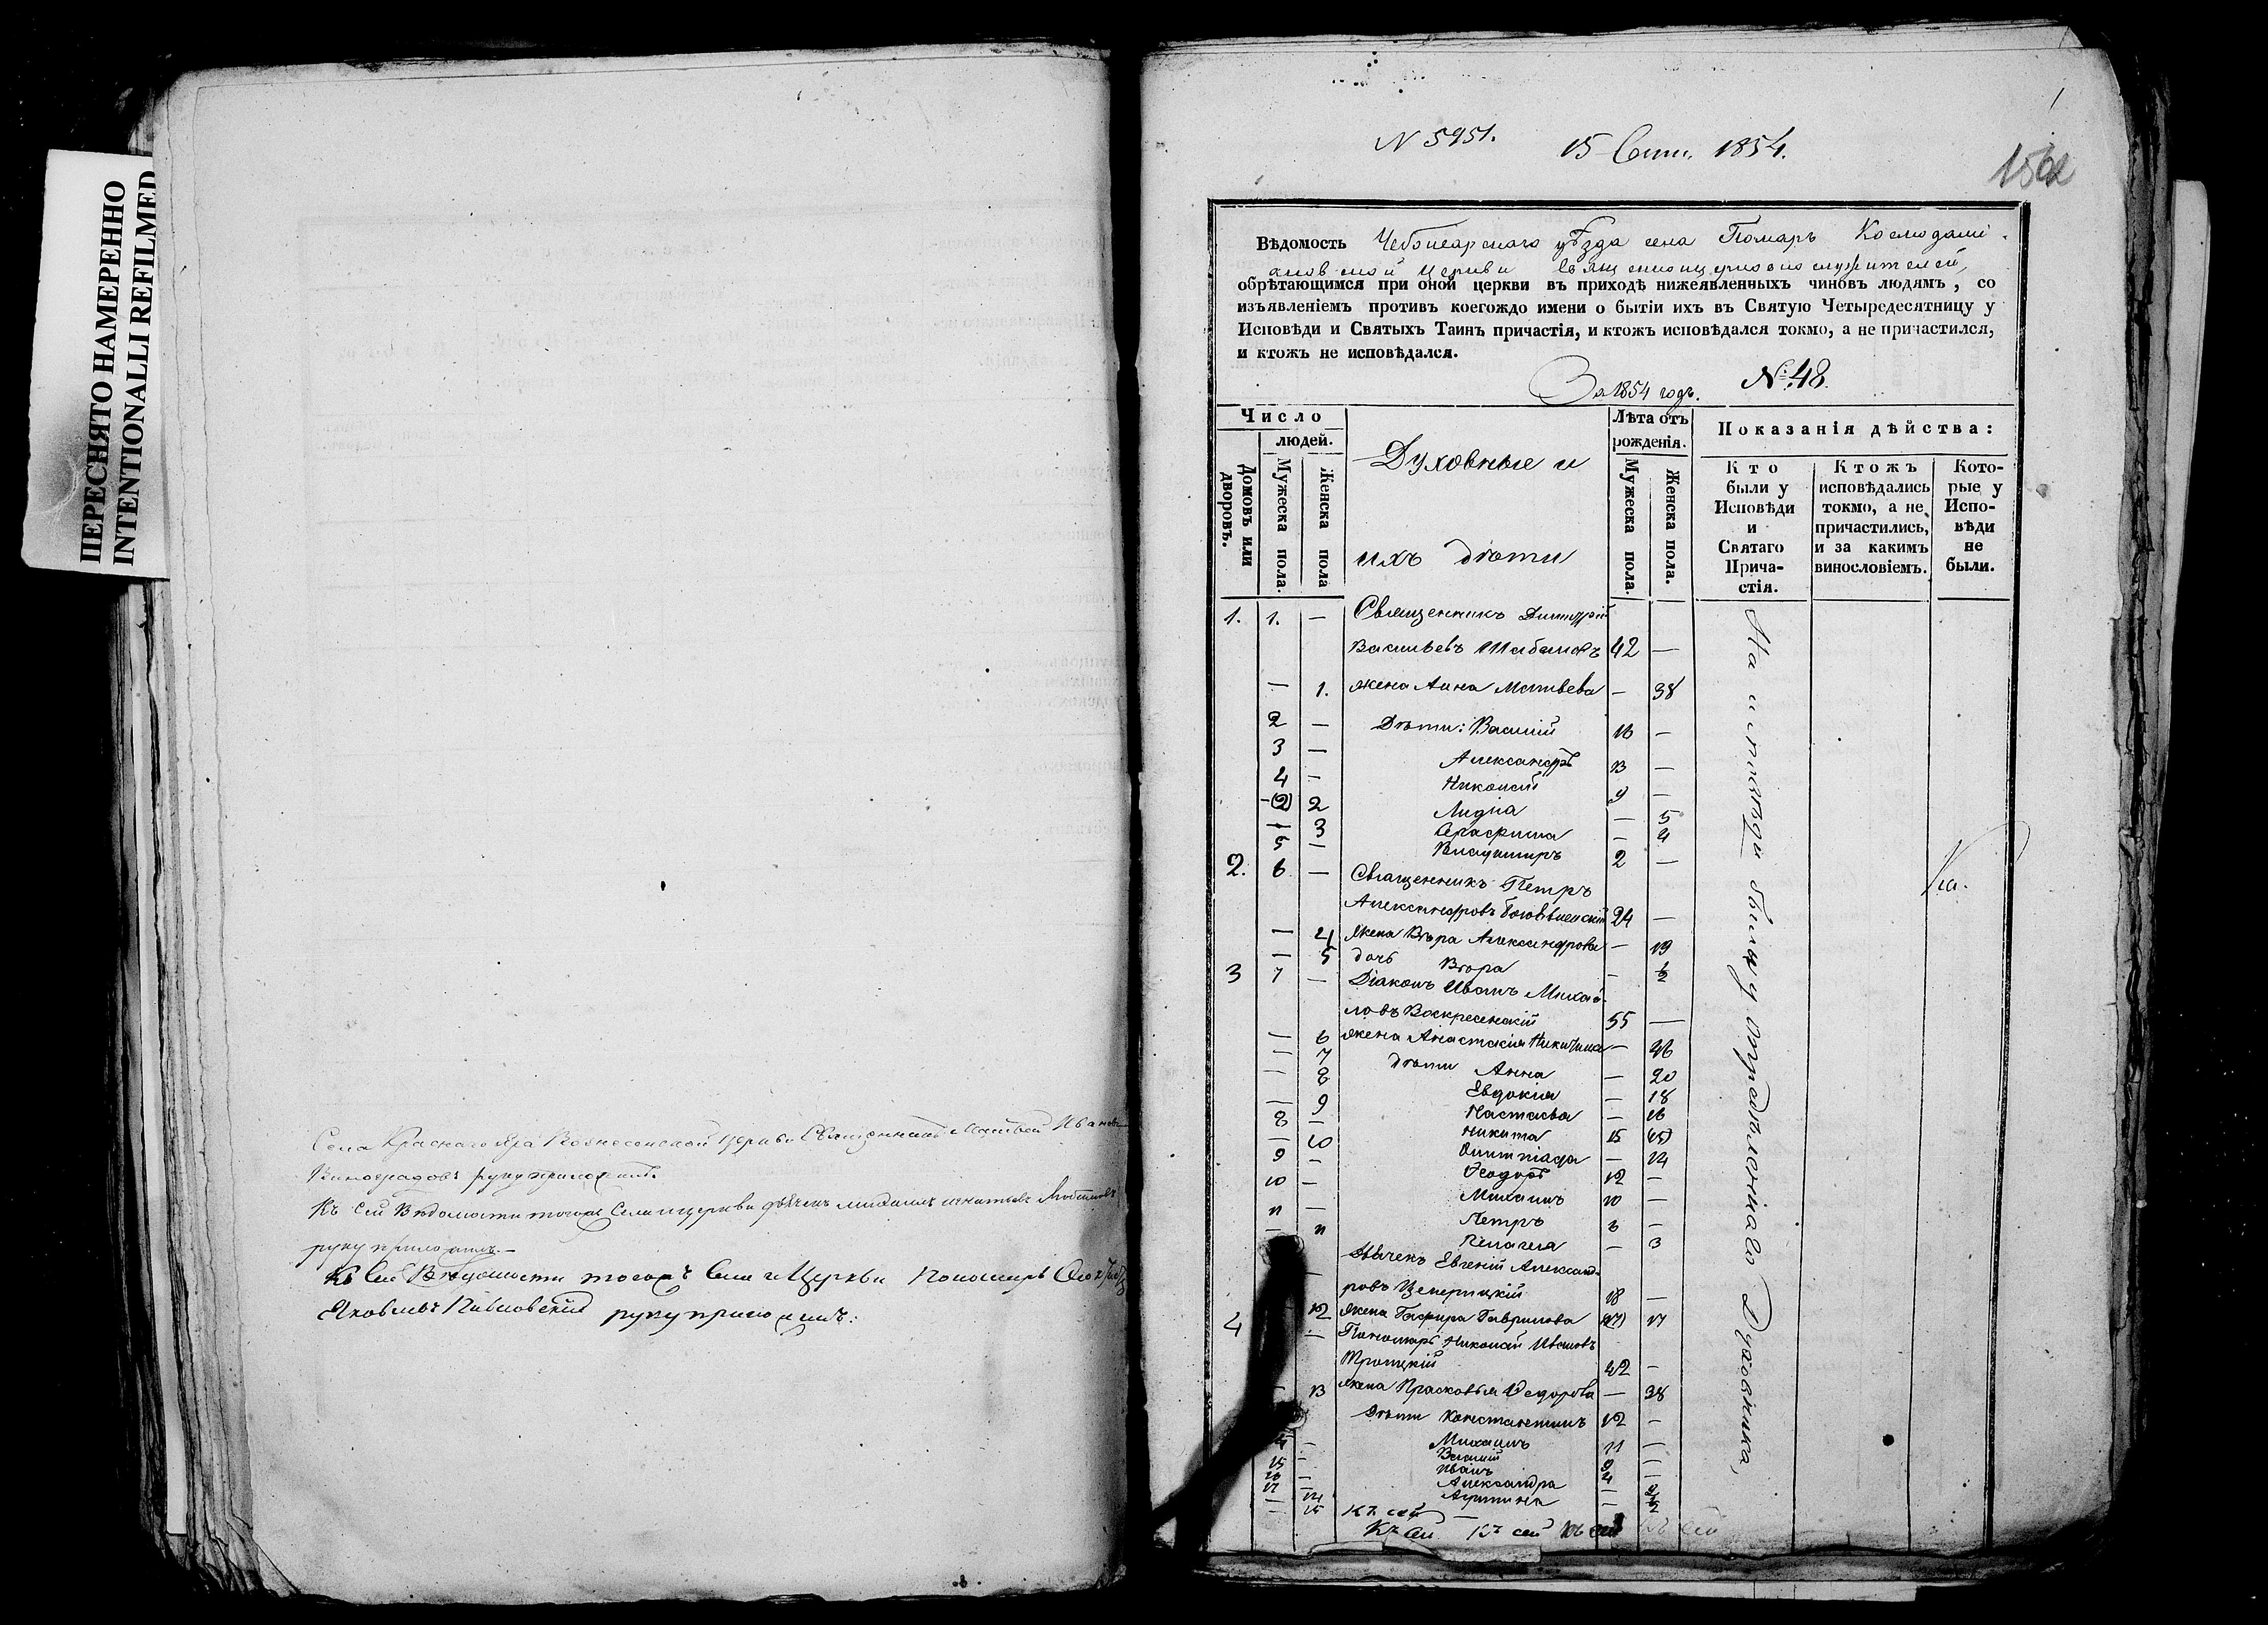 ПЕРЕСНЯТО НАМЕРЕННО
INTENTIONALLI REFILMED
Села Краснаго Яра Вознесенской церкви Священникъ Матвей Ивановъ
Виноградовъ руку приложилъ.
Къ сей Ведомости тогожъ Села церкви дьячекъ Михаилъ Игнатьевъ
руку приложилъ.
Къ сей Ведомости тогожъ Села Церкви Пономарь
Яковлевъ руку приложилъ:
N 5951. 15 Сент. 1854.
156
Вѣдомость Чебоксарскаго уѣзда села Помаръ Космодамі-
ановской церкви священноцерковнослужителей,
обрѣтающимся при оной церкви въ приходѣ нижеявленныхъ чиновъ людямъ, со
изъявленіемъ противъ коегождо имени о бытіи ихъ въ Святую Четыредесятницу у
Исповѣди и Святыхъ Таинъ причастія, и ктожъ исповѣдался токмо, а не причастился,
и ктожъ не исповѣдался.
За 1854 годъ. №: 48.
Число
людей.
Домовъ или дворовъ.
Мужеска пола.
Женска пола
Духовные и
ихъ дѣти
Лѣта отъ
рожденія.
Мужеска пола.
Женска пола.
Показанія дѣйства:
Кто
были у
Исповѣди
и
Святаго
Прича-
стія.
Ктожъ
исповѣдались
токмо, а не
причастились,
и за какимъ
винословіемъ.
Кото-
рые у
Испо-
вѣди
не
были.
1. 1. — Священникъ Димитрій
Васильевъ Шабановъ 42 —
— 1. жена Анна Матвеева — 38
2 — Дѣти: Василій 16 —
3 — Александръ 13 —
4 — Николай 9 —
— (2) 2 Лидіа — 5
— 3 Серафима — 4
5 — Владимиръ 2 —
2. 6 — Священникъ Петръ
Александровъ 24 —
— 4 жена Вѣра Александрова — 19
— 5 дочь Вѣра — ½
3 7 — Діаконъ Иванъ Михай-
ловъ Воскресенскій 55 —
— 6 жена Анастасія Никитина — 46
— 7 дѣти Анна — 20
— 8 Евдокіа — 18
— 9 Настасья — 16
8 — Никита 15 (15)
— 10 Олимпіада — 14
9 — Ѳеодоръ 12 —
10 — Михаилъ 10 —
11 — Петръ 6 —
— 11 Пелагея — 3
— Дьячекъ Евгеній Александ-
ровъ 18 —
12 жена Гавриилова (17) 17
4 — Пономарь Николай Ивановъ
Троицкій 42 —
— 13 жена Прасковья Ѳедорова — 38
дѣти Константинъ 12 —
— Михаилъ 11 —
15 — Василій 9 —
16 — Иванъ 4 —
17 14 Александра —
— 15 — ½
Къ сей
Къ сей Къ сей Къ сей Къ сей
На исповѣди были у Опредѣленнаго Духовника,